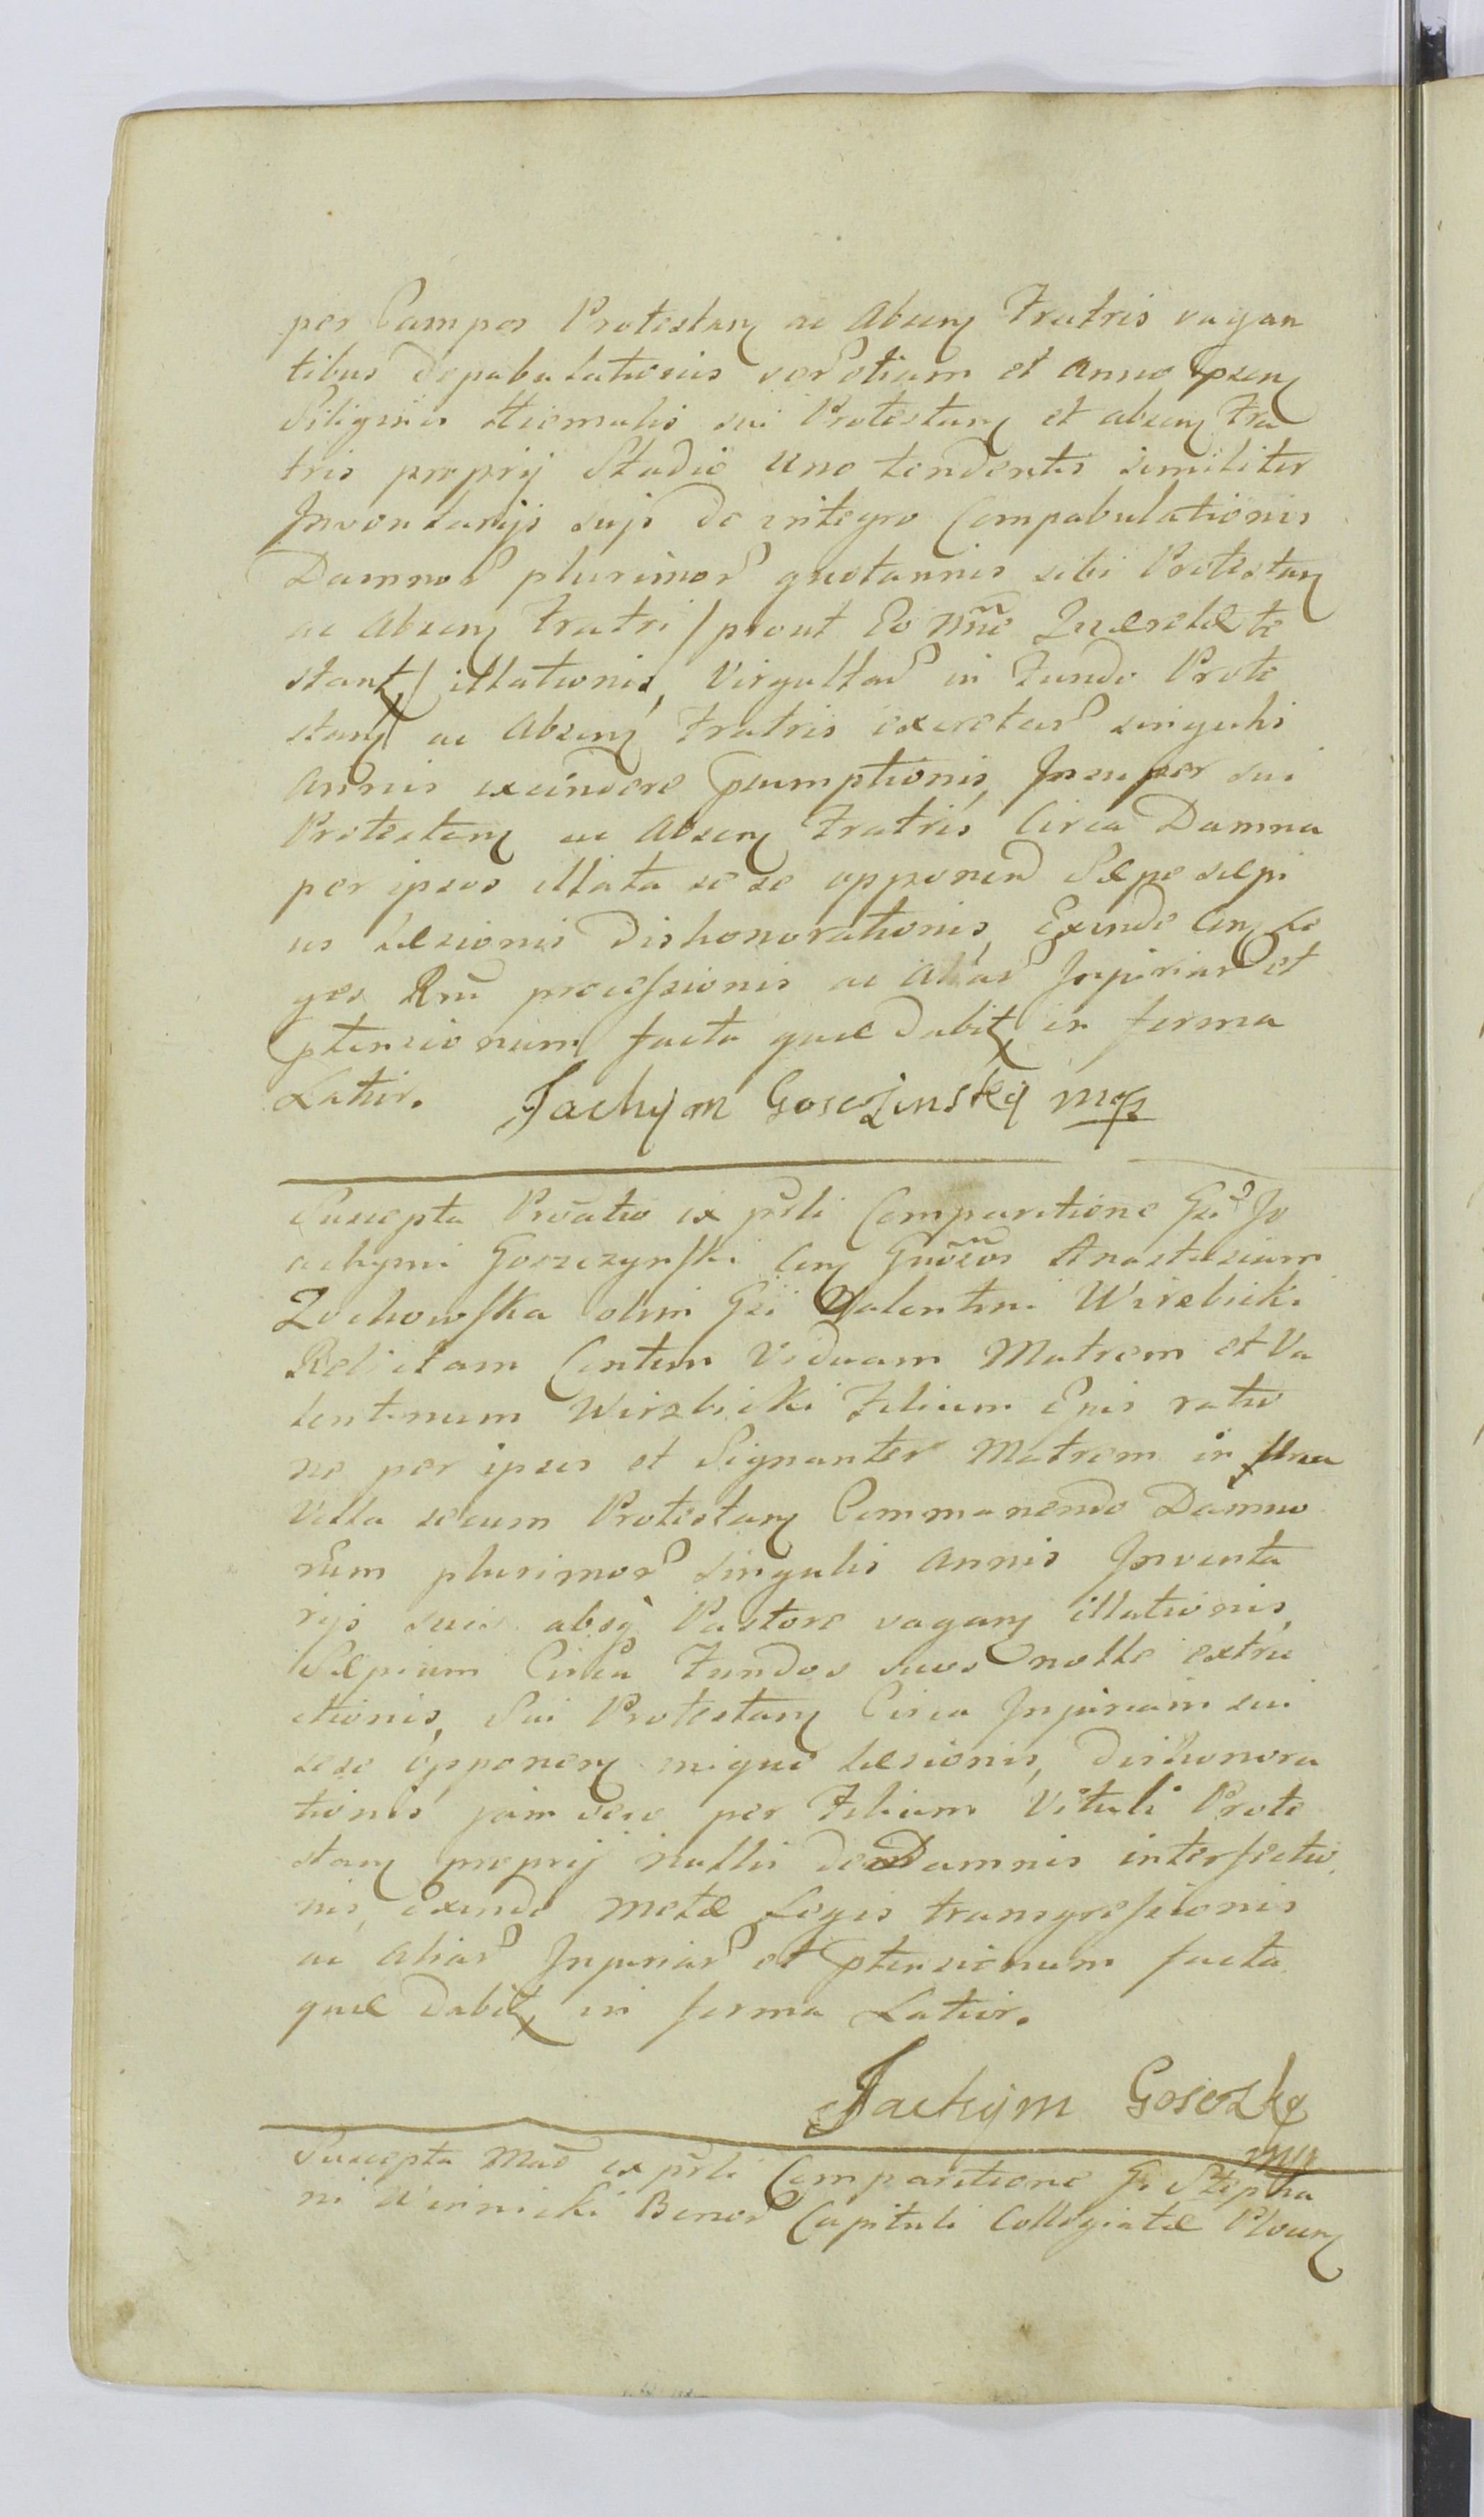 per Campos Protestan ac Absen Fratris vagan
tibus depabulationis ver etiam et Anno psen
Siliginis Hiemalis sui Protestan et absen Fra
tris proprij Studio uno tendentes similiter
Inventarijs suis de integro Compabulationis
Damnor plurimor quotannis sibi Protestan
ac Absen Fratri / prout Eo Nñe Querelæ te
stant / illationis, Virgultar in Fundo Prote
stan ac Absen Fratris excretar singulis
Annis excindere psumptionis, Insuper sui
Protestan ac Absen Fratris Circa Damna
per ipsos illata se se opponend Sæpe sæpi
us Læsionis dishonorationis, Exinde Con Le
ges Rñi processionis ac aliar Injuriar et
ptensionum facta quæ dabit in forma
Latior. Jachym Gosczinsky mp
Suscepta Proatio ex psli Comparitione Gsi Jo
achymi Goszczynski Con Gnosos Anastasiam
Zochowska olim Gsi Valentini Wirzbicki
Relictam Contem Viduam Matrem et Va
lentinum Wirzbicki Filium Ejus ratio
ne per ipsos et Signanter Matrem in una
Villa secum Protestan Commanendo Damno
rum plurimor singulis annis Inventa
rijs suis absq Pastore vagan illationis,
Sæpium Circa Fundos suos nolle extru
ctionis, Sui Protestan Circa Injuriam sui
sese opponen inique Læsionis, dishonora
tionis jam vero per Filium Vituli Prote
stan proprij nullis de Damnis interfectio
nis, exinde metæ Legis transgressionis
ac aliar Injuriar et ptensionum facta
quæ dabit in forma Latior.
Jachym Goscz
mp
Suscepta Mad ex psli Comparitione G. Stepha
ni Winnicki Bonor Capituli Collegiatæ Plocen